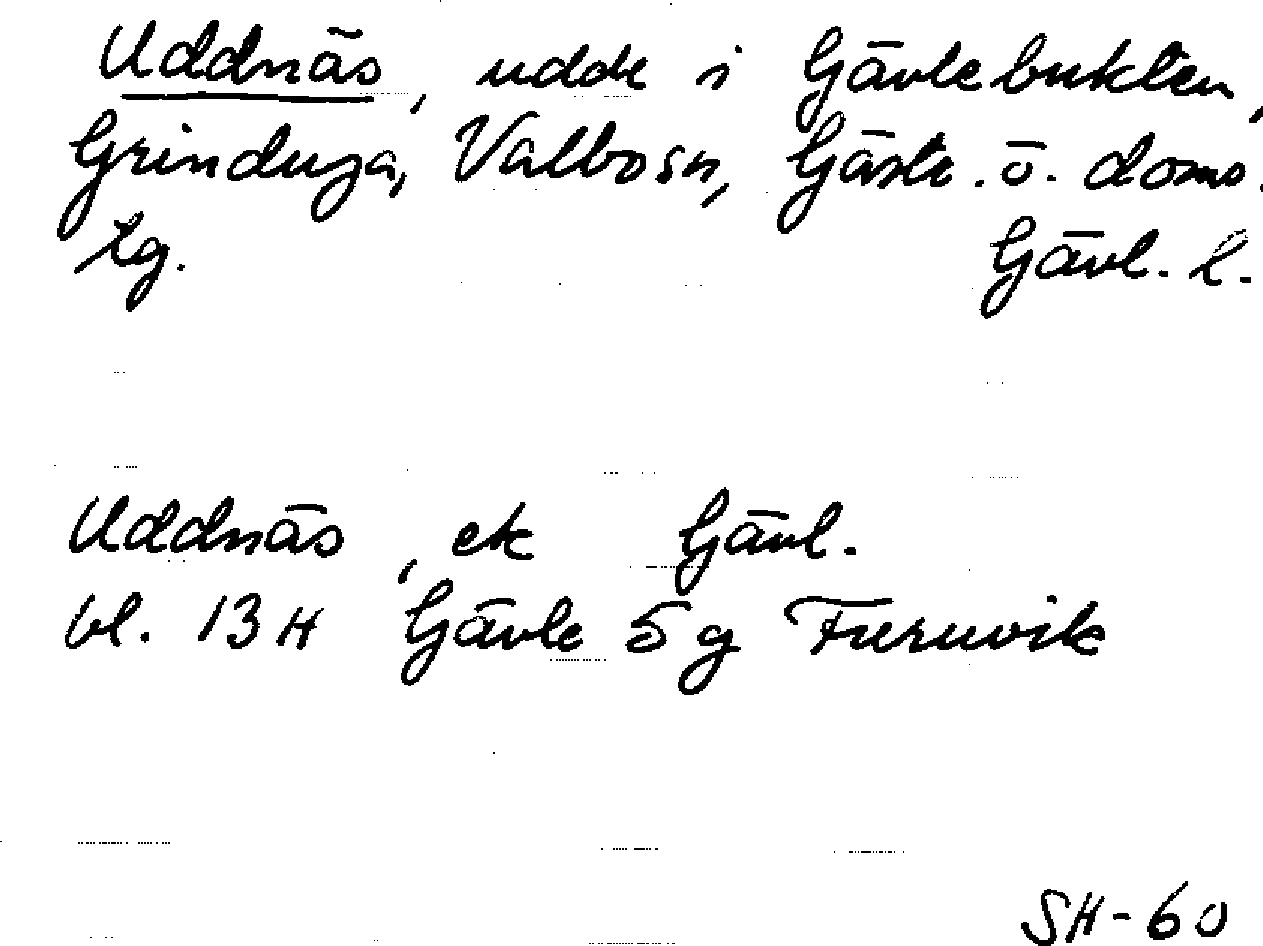 Uddnäs, udde i Gävlebukten,
Grinduga, Valbo sn, Gästr. ö. doms.
tg. Gävl. l.
Uddnäs, ek Gävl.
bl. 13 H Gävle 5 g Furuvik
SH-60